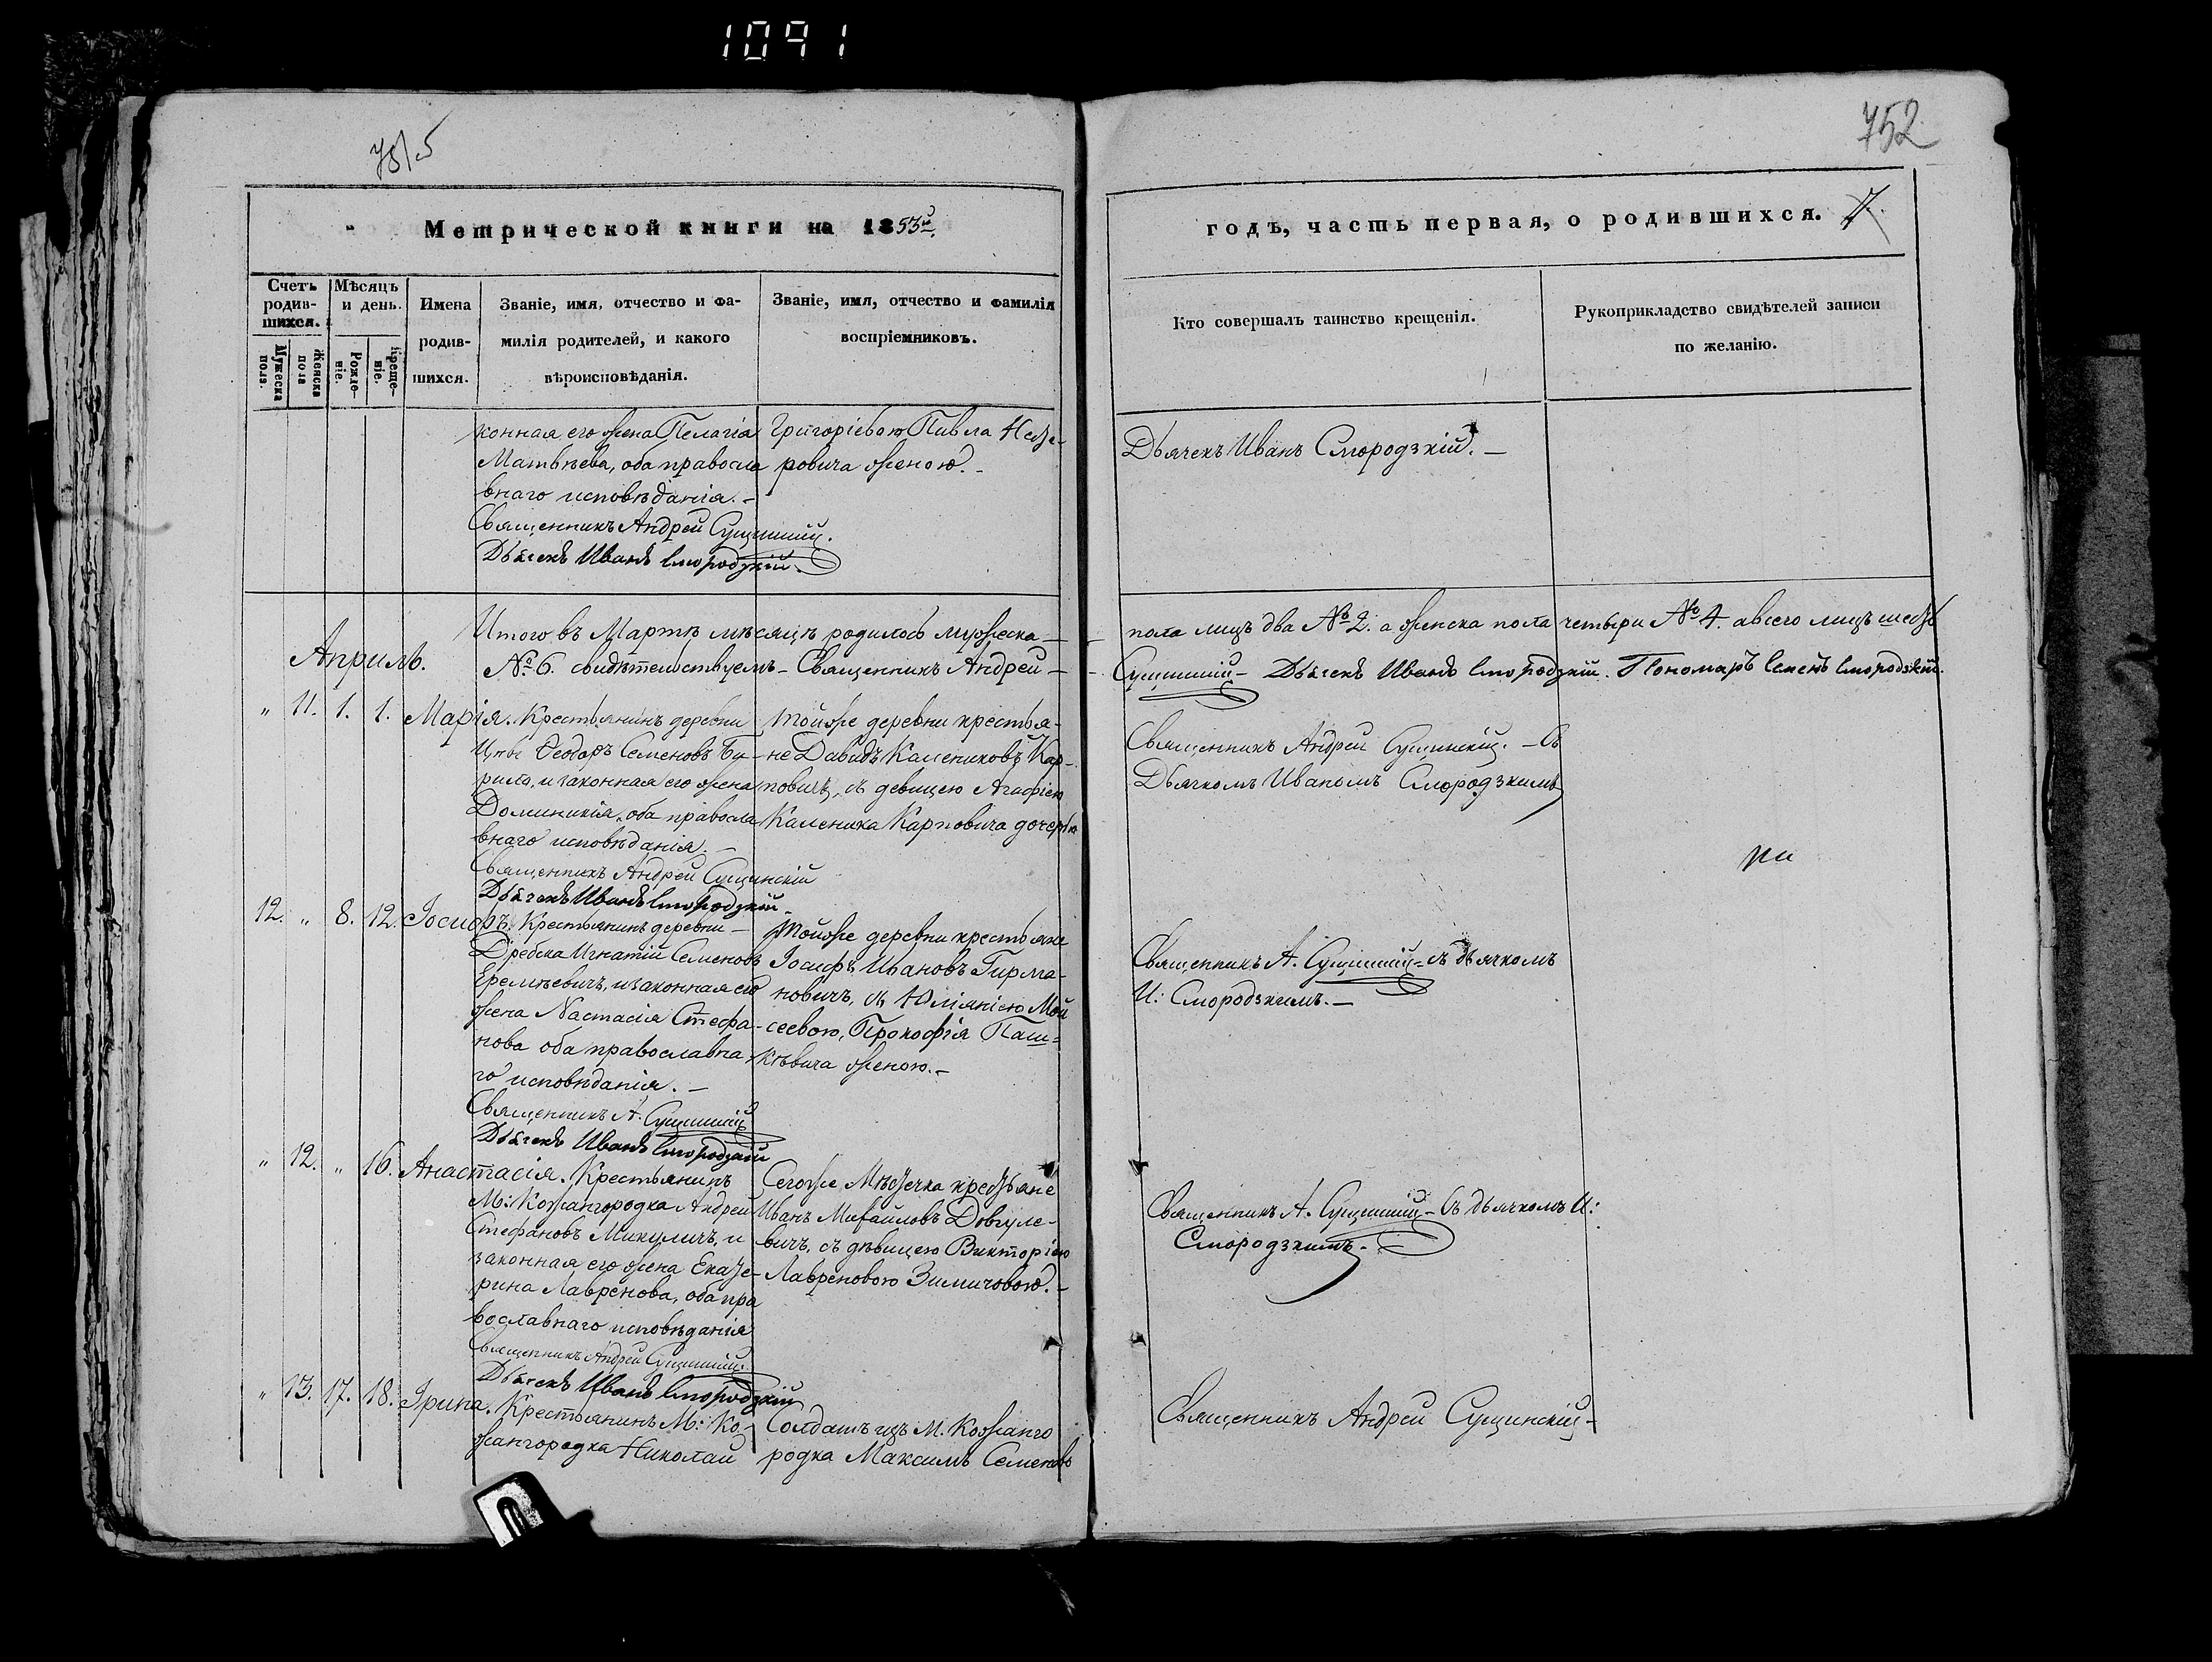 1091
751.5
752
Метрической книги на 1853й.
годъ, часть первая, о родившихся. 7.
Счетъ родив-шихся.
Мѣсяцъ и день.
Мужеска пола.
Женска пола
Рожде-ніе.
Креще-ніе.
Имена
родив-
шихся.
Званіе, имя, отчество и фа-
милія родителей, и какого
вѣроисповѣданія.
Званіе, имя, отчество и фамилія
воспріемниковъ.
Кто совершалъ таинство крещенія.
Рукоприкладство свидѣтелей записи
по желанію.
конная его жена Пелагія
Матвѣева, оба правосла
внаго исповѣданія. -
Священникъ Андрей Сущинскій.
Дьячекъ Иванъ Смородзкій.
Григоріевою Павла Недзе-
ровича женою. -
Дьячекъ Иванъ Смородзкій. -
Итого въ Мартѣ мѣсяцѣ родилось мужеска -
пола лицъ два № 2. а женска пола четыри № 4. а всего лицъ шесть
№ 6. свидѣтельствуемъ - Священникъ Андрей -
Сущинскій - Дьячекъ Иванъ Смородзкій. Пономаръ Семенъ Смородзкій.
Апрль.
" 11. 1. 1. Марія. Крестьянинъ деревни
Цтве Ѳеодоръ Семеновъ
рило, и законная его жена
Доминикія, оба правосла
внаго исповѣданія. -
Священникъ Андрей Сущинскій
Дьячекъ Иванъ Смородзкій -
тойже деревни крестья-
не Давидъ Калениковъ Кар-
повичъ, съ девицею Агафіею
Каленика Карповича дочерью
Священникъ Андрей Сущинскій. - Съ
Дьячкомъ Иваномъ Смородзкимъ
12. " 8. 12. Іосифъ. Крестьянинъ деревни -
Дребска Игнатій Семеновъ
Еремѣевичъ, и законная его
жена Настасія Стефа-
нова оба православна
го исповѣданія. -
Священникъ А. Сущинскій
Дьячекъ Иванъ Смородзкій
Тойже деревни крестьяне
Іосифъ Ивановъ Гирма-
новичъ, съ Юліяніею Мои
сеевою, Прокофія Паш-
кѣвича женою. -
Священникъ А. Сущинскій - съ дьячкомъ
И: Смородзкимъ. -
" 12. " 16. Анастасія. Крестьянинъ
М: Кожангородка Андрей
Стефановъ Микуличъ, и
законная его жена Екате-
рина Лавренова, оба пра
вославнаго исповѣданія
Священникъ Андрей Сущинскій.
Дьячекъ Иванъ Смородзкій
Сегоже Мѣстечка крестьяне
Иванъ Михайловъ Довгуле-
вичъ, съ дѣвицею Викторіею
Лавреновою Зимичовою. -
Священникъ А. Сущинскій - Съ дьячкомъ И:
Смородзкимъ. -
" 13. 17. 18. Ірина. Крестьянинъ М: Ко-
жангородка Николай
Солдатъ изъ М. Кожанго
родка Максимъ Семеновъ
Священникъ Андрей Сущинскій -